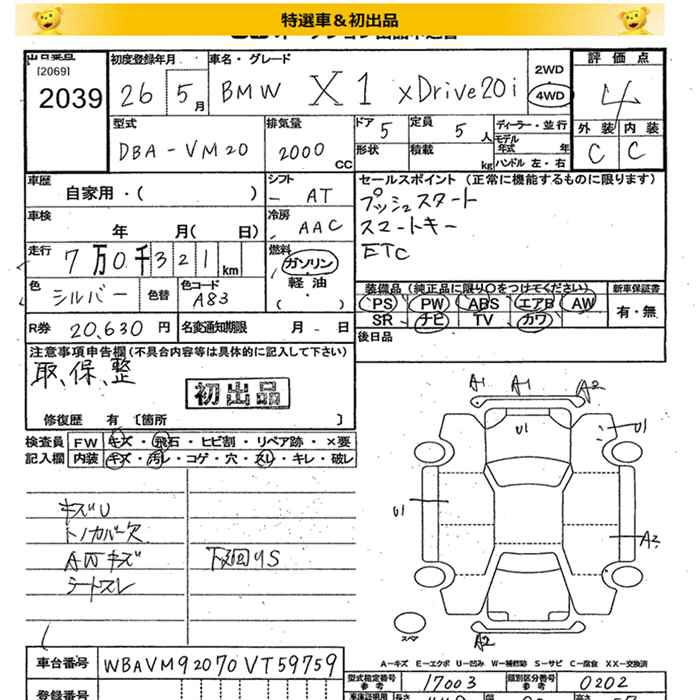 特選車＆初出品
[2069]
2039
初度登録年月
26 5月
車名・グレード
BMW X1 xDrive20i
2WD
4WD
評価点
4
外装 内装
C C
型式
DBA-VM20
排気量
2000 CC
ドア 5
定員 5人
形状
積載 kg
ディーラー・並行
モデル年式 年
ハンドル 左・右
車歴
自家用・( )
シフト
- AT
セールスポイント (正常に機能するものに限ります)
プッシュスタート
スマートキー
ETC
車検
年 月( 日)
冷房
AAC
走行
7万0千321km
燃料
ガソリン
軽油
( ・ )
色
シルバー
色替
色コード
A83
装備品(純正品に限り○をつけてください)
新車保証書
PS PW ABS エアB AW
SR ナビ TV カワ
有・無
R券 20,630円
名変通知期限 月 - 日
後日品
注意事項申告欄(不具合内容等は具体的に記入して下さい)
取、保、整
初出品
修復歴 有 〔箇所 〕
検査員 FW キズ・飛石・ヒビ割・リペア跡・×要
記入欄 内装 キズ・汚レ・コゲ・穴・スレ・キレ・破レ
キズU
トノカバー欠
AWキズ
シートスレ
下廻りS
A1 A1 A2
U1 U1
U1
A2
スペア
A2
A－キズ E－エクボ U－凹み W－補修跡 S－サビ C－腐食 XX－交換済
車台番号 WBAVM92070VT59759
型式指定番号 参考 17003
類別区分番号 参考 0202